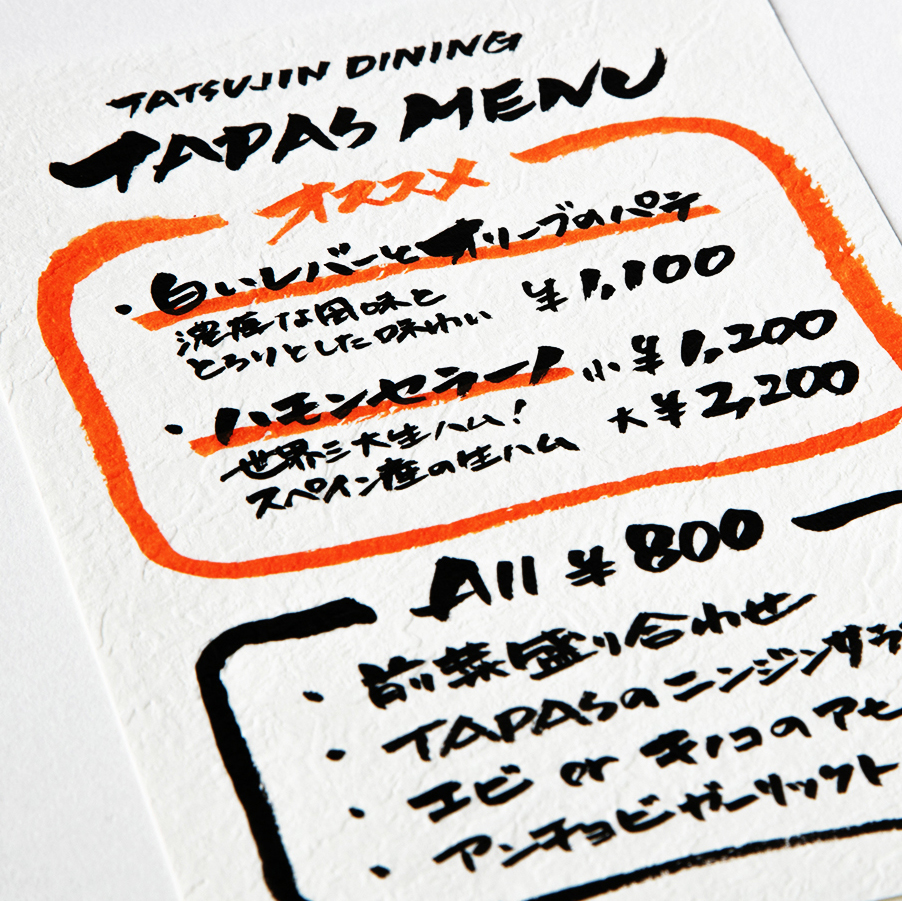 TATSUJIN DINING
TAPAS MENU
オススメ
・白いレバーとオリーブのパテ
濃厚な風味と
とろりとした味わい
¥1,100
・ハモンセラーノ
小¥1,200
世界三大生ハム!
大¥2,200
スペイン産の生ハム
All ¥800
・前菜盛り合わせ
・TAPASのニンジンサラ
・エビ or キノコのアセ
・アンチョビガーリックト